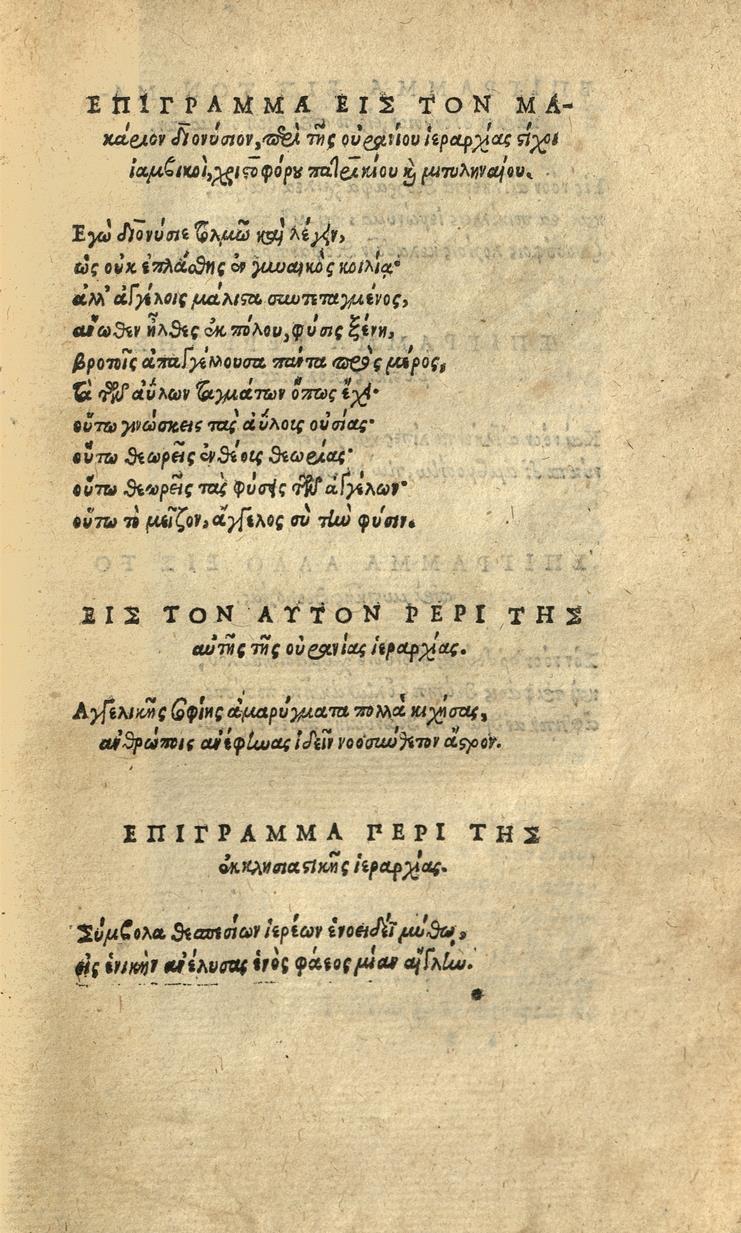 ΕΠΙΓΡΑΜΜΑ ΕΙΣ ΤΟΝ ΜΑ-
κάριον διονύσιον, περὶ τῆς οὐρανίου ἱεραρχίας στίχοι
ἰαμβικοὶ, χριστοφόρου πατρικίου καὶ μιτυληναίου.
Εγὼ διονύσιε τολμῶ καὶ λέγειν,
ὡς οὐκ ἐπλάσθης ἐν γυναικὸς κοιλίᾳ·
ἀλλ' ἀγγέλοις μάλιστα συντεταγμένος,
ἄνωθεν ἦλθες ἐκ πόλου, φύσις ξένη,
βροτοῖς ἀπαγγέλλουσα πάντα πρὸς μέρος,
τὰ τῶν ἀΰλων ταγμάτων ὅπως ἔχει·
οὕτω γινώσκεις τὰς ἀΰλοις οὐσίας·
οὕτω θεωρεῖς ἐνθέοις θεωρίας·
οὕτω θεωρεῖς τὰς φύσεις τῶν ἀγγέλων·
οὕτω τὸ μεῖζον, ἄγγελος σὺ τὴν φύσιν.
ΕΙΣ ΤΟΝ ΑΥΤΟΝ ΡΕΡΙ ΤΗΣ
αὐτῆς τῆς οὐρανίας ἱεραρχίας.
Αγγελικῆς σοφίης ἀμαρύγματα πολλὰ κιχήσας,
ἀνθρώποις ἀνέφηνας ἰδεῖν νοοσύνθετον ἄστρον.
ΕΠΙΓΡΑΜΜΑ ΠΕΡΙ ΤΗΣ
ἐκκλησιαστικῆς ἱεραρχίας.
Σύμβολα θεσπεσίων ἱερέων ἑνοειδέϊ μύθῳ,
εἰς ἑνικὴν ἀνέλυσας ἑνὸς φάεος μίαν αἴγλην.